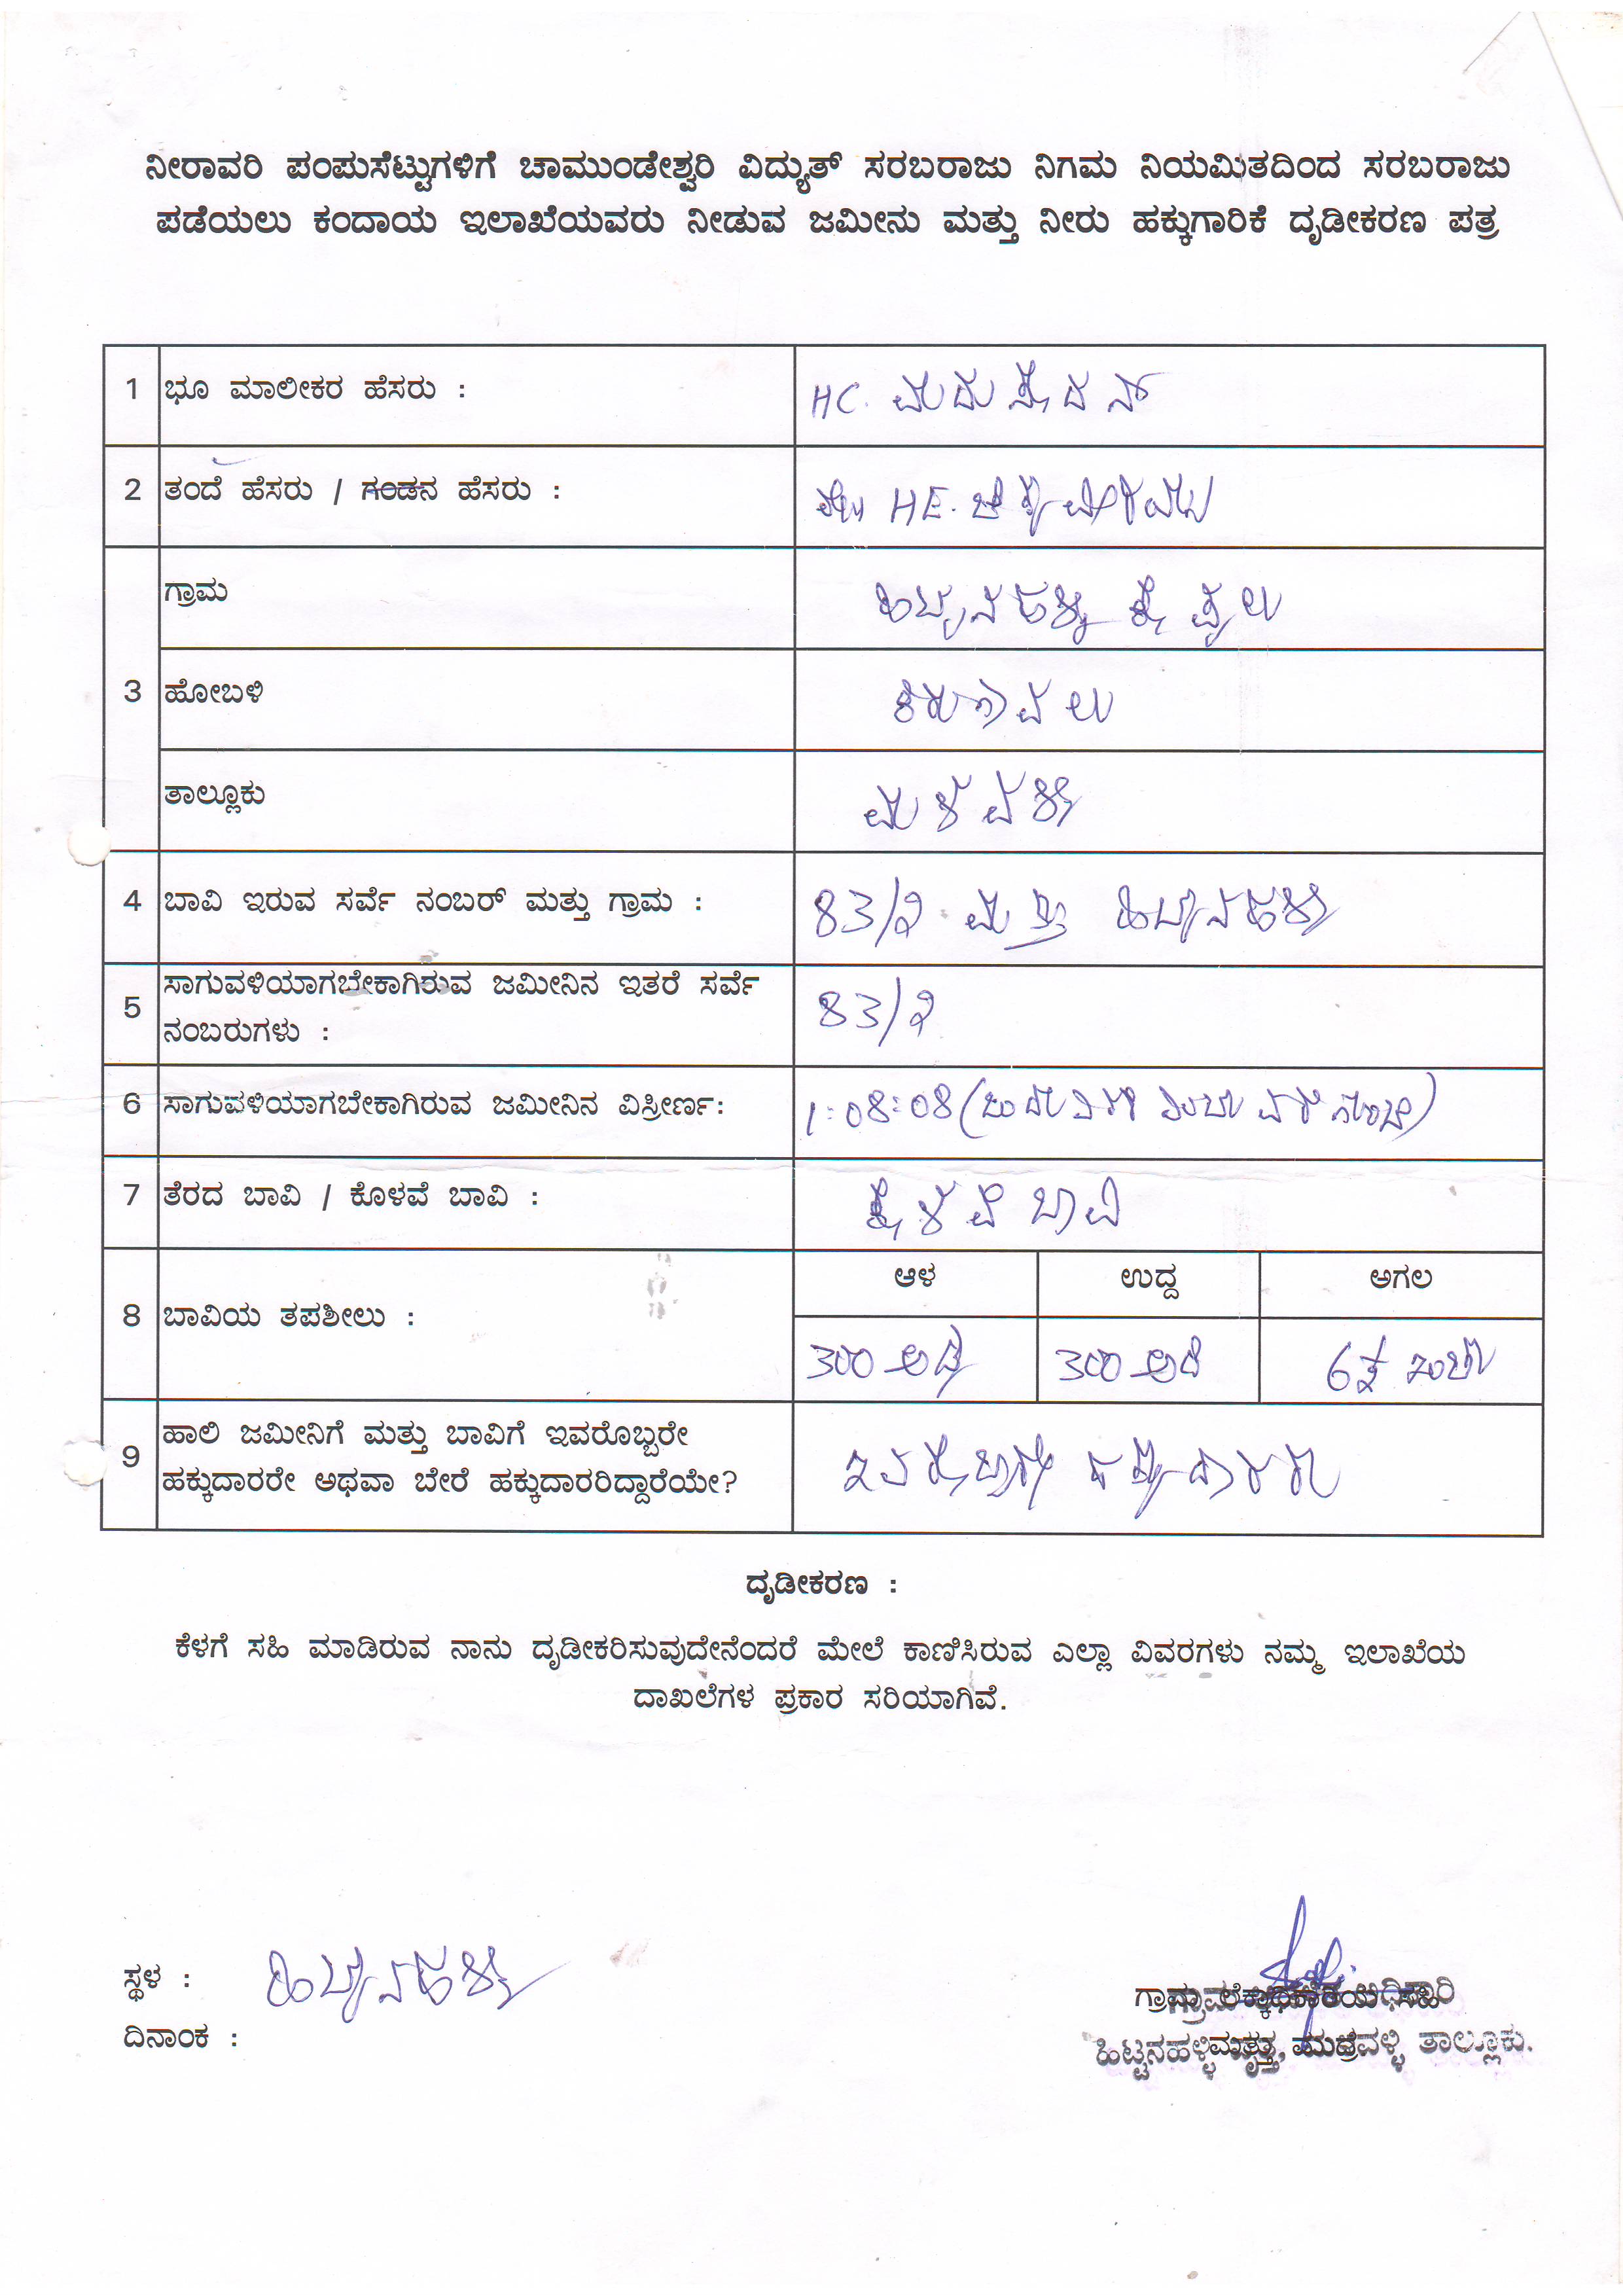 ನೀರಾವರಿ ಪಂಪುಸೆಟ್ಟುಗಳಿಗೆ ಚಾಮುಂಡೇಶ್ವರಿ ವಿದ್ಯುತ್ ಸರಬರಾಜು ನಿಗಮ ನಿಯಮಿತದಿಂದ ಸರಬರಾಜು
ಪಡೆಯಲು ಕಂದಾಯ ಇಲಾಖೆಯವರು ನೀಡುವ ಜಮೀನು ಮತ್ತು ನೀರು ಹಕ್ಕುಗಾರಿಕೆ ದೃಡೀಕರಣ ಪತ್ರ
1 ಭೂ ಮಾಲೀಕರ ಹೆಸರು : HC. ಮದುಸೂದನ್
2 ತಂದೆ ಹೆಸರು / ಗಂಡನ ಹೆಸರು : HE.
ಗ್ರಾಮ ಹಿಟ್ಟನಹಳ್ಳಿ ಕೊಪ್ಪಲು
3 ಹೋಬಳಿ ಕಿರುಗಾವಲು
ತಾಲ್ಲೂಕು ಮಳವಳ್ಳಿ
4 ಬಾವಿ ಇರುವ ಸರ್ವೆ ನಂಬರ್ ಮತ್ತು ಗ್ರಾಮ : 83/2 ಮತ್ತು ಹಿಟ್ಟನಹಳ್ಳಿ
5 ಸಾಗುವಳಿಯಾಗಬೇಕಾಗಿರುವ ಜಮೀನಿನ ಇತರೆ ಸರ್ವೆ
ನಂಬರುಗಳು : 83/2
6 ಸಾಗುವಳಿಯಾಗಬೇಕಾಗಿರುವ ಜಮೀನಿನ ವಿಸ್ತೀರ್ಣ: 1:08:08
7 ತೆರದ ಬಾವಿ / ಕೊಳವೆ ಬಾವಿ : ಕೊಳವೆ ಬಾವಿ
ಆಳ ಉದ್ದ ಅಗಲ
8 ಬಾವಿಯ ತಪಶೀಲು : 300 ಅಡಿ 300 ಅಡಿ 6½ ಇಂಚು
9 ಹಾಲಿ ಜಮೀನಿಗೆ ಮತ್ತು ಬಾವಿಗೆ ಇವರೊಬ್ಬರೇ
ಹಕ್ಕುದಾರರೇ ಅಥವಾ ಬೇರೆ ಹಕ್ಕುದಾರರಿದ್ದಾರೆಯೇ? ಇವರೊಬ್ಬರೇ ಹಕ್ಕುದಾರರು
ದೃಡೀಕರಣ :
ಕೆಳಗೆ ಸಹಿ ಮಾಡಿರುವ ನಾನು ದೃಡೀಕರಿಸುವುದೇನೆಂದರೆ ಮೇಲೆ ಕಾಣಿಸಿರುವ ಎಲ್ಲಾ ವಿವರಗಳು ನಮ್ಮ ಇಲಾಖೆಯ
ದಾಖಲೆಗಳ ಪ್ರಕಾರ ಸರಿಯಾಗಿವೆ.
ಸ್ಥಳ : ಹಿಟ್ಟನಹಳ್ಳಿ
ದಿನಾಂಕ :
ಹಿಟ್ಟನಹಳ್ಳಿ ವೃತ್ತ, ಮಳವಳ್ಳಿ ತಾಲ್ಲೂಕು.